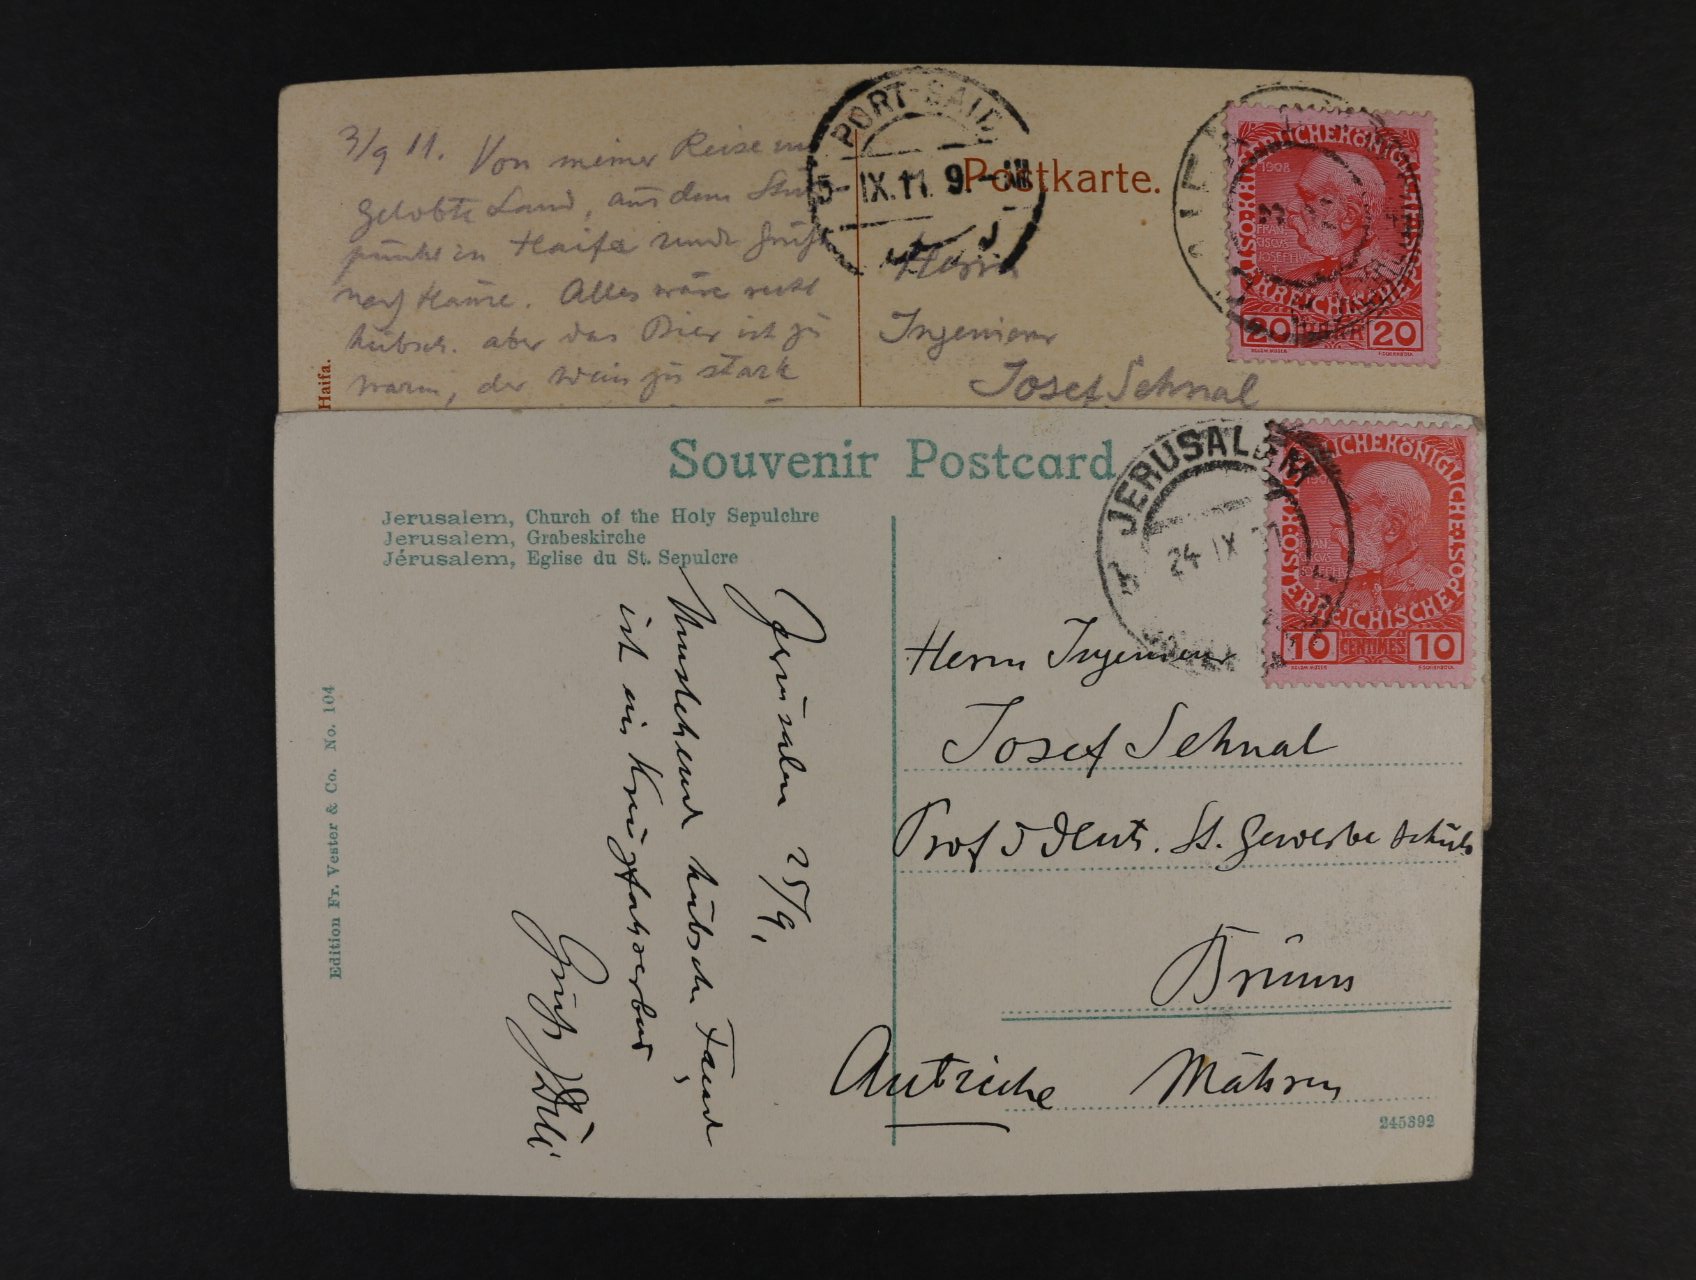 3/9 11. Von meiner Reise ins
gelobte Land, aus dem
in Haifa
nach Hause. Alles wäre recht
hübsch. aber das Bier ist zu
warm, der Wein zu stark
Haifa.
PORT-SAID
5-IX.11. 9 - AM
Postkarte.
Herrn
Ingenieur
Josef Sehnal
KAISERLICHE KÖNIGLICHE
ÖSTERREICHISCHE POST
1908
FRAN
CISCVS
JOSEPHVS
20 PARA 20
Souvenir Postcard
Jerusalem, Church of the Holy Sepulchre
Jerusalem, Grabeskirche
Jérusalem, Eglise du St. Sepulcre
Edition Fr. Vester & Co. No. 104
Jerusalem 25/9,
Umstehend hübsche Faust
ist ein
Gruß Willi
JERUSALEM
24 IX
10 CENTIMES 10
Herrn Ingenieur
Josef Sehnal
Prof d Deut. St. Gewerbeschule
Brünn
Autriche Mähren
245392